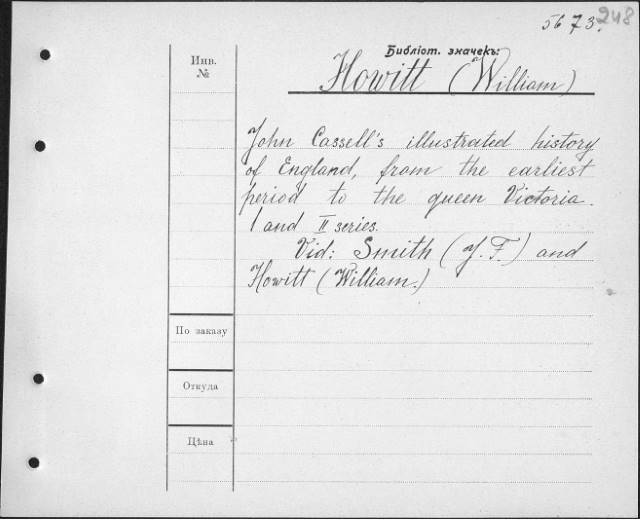 5673.
248
Библіот. значекъ:
Инв.
№
Howitt (William)
John Cassell's illustrated history
of England, from the earliest
period to the queen Victoria.
I and II series.
Vid: Smith (J. F.) and
Howitt (William.)
По заказу
Откуда
Цѣна